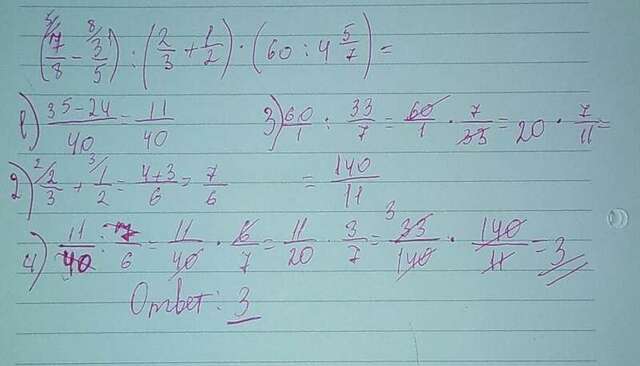 (7/8 - 3/5) : (2/3 + 1/2) · (60 : 4 5/7) =
1) (35-24)/40 = 11/40
3) 60/1 : 33/7 = 60/1 · 7/33 = 20 · 7/11 = 140/11
2) 2/3 + 1/2 = (4+3)/6 = 7/6
4) 11/40 : 7/6 = 11/40 · 6/7 = 11/20 · 3/7 = 33/140 · 140/11 = 3
Ответ: 3